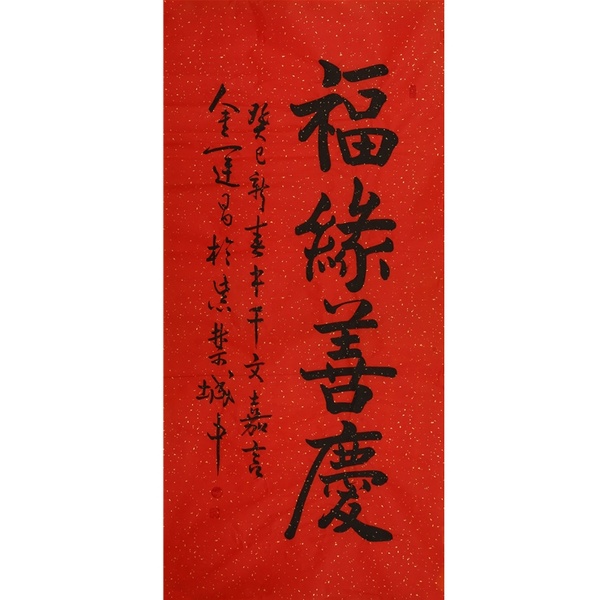 福緣善慶
癸巳新春書千文嘉言
金運昌於紫禁城中